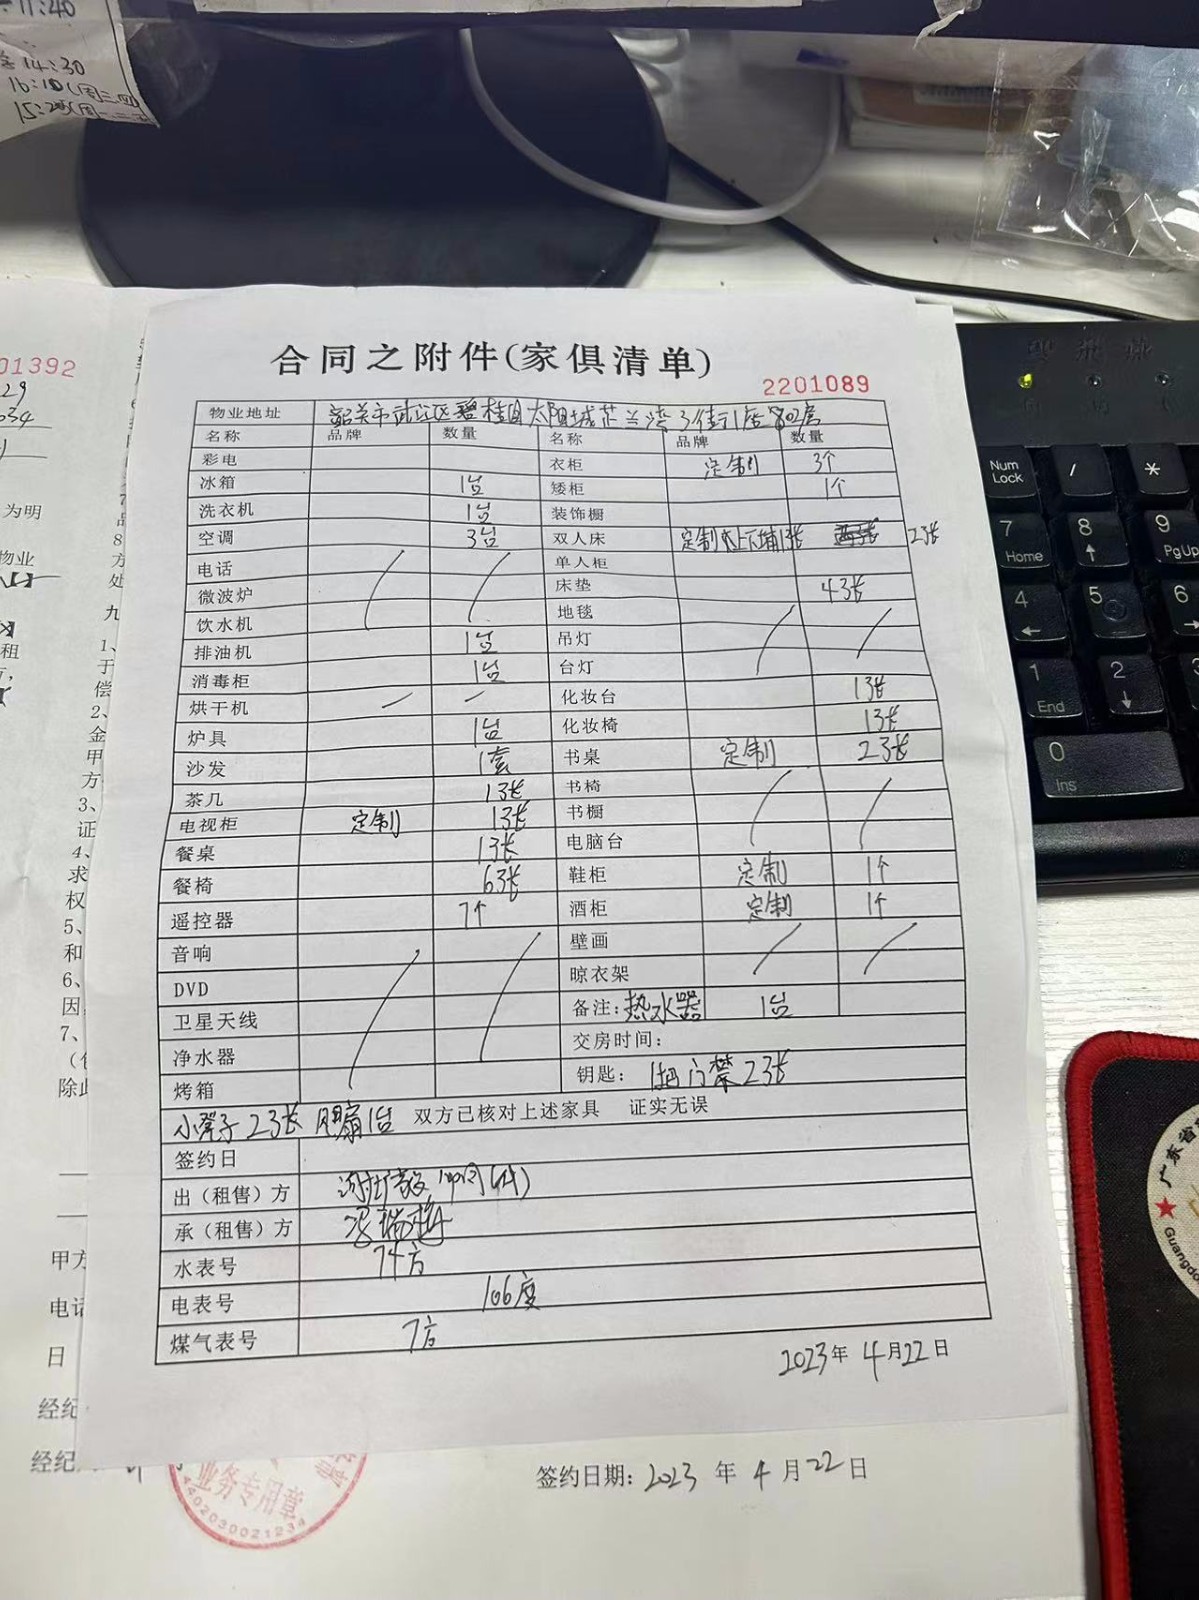 11:40
14:30
16:10(周二四)
01392
29
034
为明
物业
租
合同之附件(家俱清单)
2201089
物业地址 韶关市武江区碧桂园太阳城芷兰湾3街1座802房
名称 品牌 数量 名称 品牌 数量
彩电 衣柜 定制 3个
冰箱 1台 矮柜 1个
洗衣机 1台 装饰橱
空调 3台 双人床 2张
电话 单人柜
微波炉 床垫 4张
饮水机 地毯
排油机 1台 吊灯
消毒柜 1台 台灯
烘干机 化妆台 1张
炉具 1台 化妆椅 1张
沙发 1套 书桌 定制 2张
茶几 1张 书椅
电视柜 定制 1张 书橱
餐桌 1张 电脑台
餐椅 6张 鞋柜 定制 1个
遥控器 7个 酒柜 定制 1个
音响 壁画
DVD 晾衣架
卫星天线 备注:热水器 1台
净水器 交房时间:
烤箱 钥匙: 1把 门禁2张
小凳子2张 风扇1台 双方已核对上述家具 证实无误
签约日
出(租售)方
承(租售)方
水表号 74方
电表号 166度
煤气表号 7方
2023年 4月22日
8
方
处
九
1、
于
偿
2、
金
甲
方
3、
证
4、
求
权
5、
和
6、
因
7、
除此
甲方
电话
日
经纪
经纪
业务专用章
4402030021234
签约日期: 2023 年 4 月 22 日
Num Lock
/
*
7 Home
8
9 PgUp
4
5
6
1 End
2
3
0 Ins
广东省
Guangdo